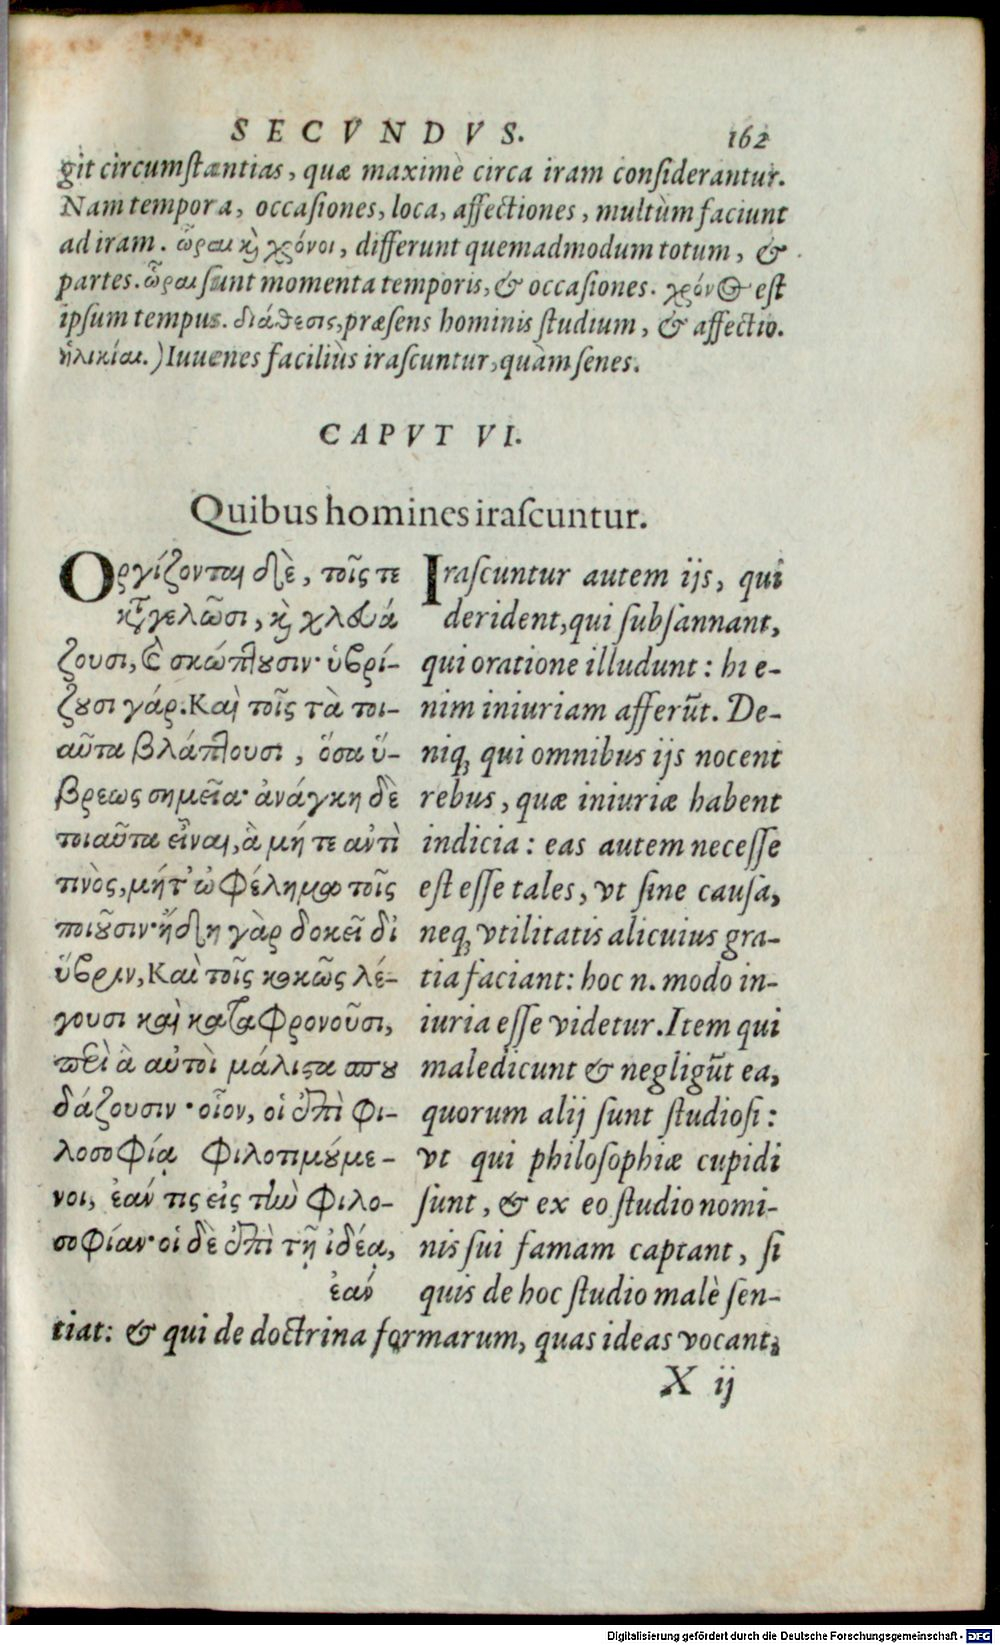 SECVNDVS. 162
git circumſtantias, quæ maximè circa iram conſiderantur.
Nam tempora, occaſiones, loca, affectiones, multùm faciunt
ad iram. ὧραι κὶ χρόνοι, differunt quemadmodum totum, &
partes. ὧραι ſunt momenta temporis, & occaſiones. χρόνος est
ipſum tempus. διάθεσις, præſens hominis ſtudium, & affectio.
ἡλικίαι.) Iuuenes faciliùs iraſcuntur, quàm ſenes.
CAPVT VI.
Quibus homines iraſcuntur.
Οργίζονται δὲ, τοῖς τε
καταγελῶσι, κὶ χλευά
ζουσι, κὶ σκώπτουσιν· ὑβρί-
ζουσι γάρ. Καὶ τοῖς τὰ τοι-
αῦτα βλάπτουσι, ὅσα ὕ-
βρεως σημεῖα· ἀνάγκη δὲ
τοιαῦτα εἶναι, ἃ μή τε ἀντὶ
τινὸς, μήτ' ὠφέλημα τοῖς
ποιοῦσιν· ἤδη γὰρ δοκεῖ δι
ὕβριν, Καὶ τοῖς κακῶς λέ-
γουσι καὶ καταφρονοῦσι,
περὶ ἃ αὐτοὶ μάλιστα σπου
δάζουσιν· οἷον, οἱ ἐπὶ φι-
λοσοφίᾳ φιλοτιμούμε-
νοι, ἐάν τις εἰς τὴν φιλο-
σοφίαν· οἱ δὲ ἐπὶ τῇ ἰδέᾳ,
ἐάν
Iraſcuntur autem ijs, qui
derident, qui ſubſannant,
qui oratione illudunt: hi e-
nim iniuriam afferūt. De-
niq; qui omnibus ijs nocent
rebus, quæ iniuriæ habent
indicia: eas autem neceſſe
eſt eſſe tales, vt ſine cauſa,
neq; vtilitatis alicuius gra-
tia faciant: hoc n. modo in-
iuria eſſe videtur. Item qui
maledicunt & negligūt ea,
quorum alij ſunt ſtudioſi:
vt qui philoſophiæ cupidi
ſunt, & ex eo ſtudio nomi-
nis ſui famam captant, ſi
quis de hoc ſtudio malè ſen-
tiat: & qui de doctrina formarum, quas ideas vocant,
X ij
Digitalisierung gefördert durch die Deutsche Forschungsgemeinschaft - DFG